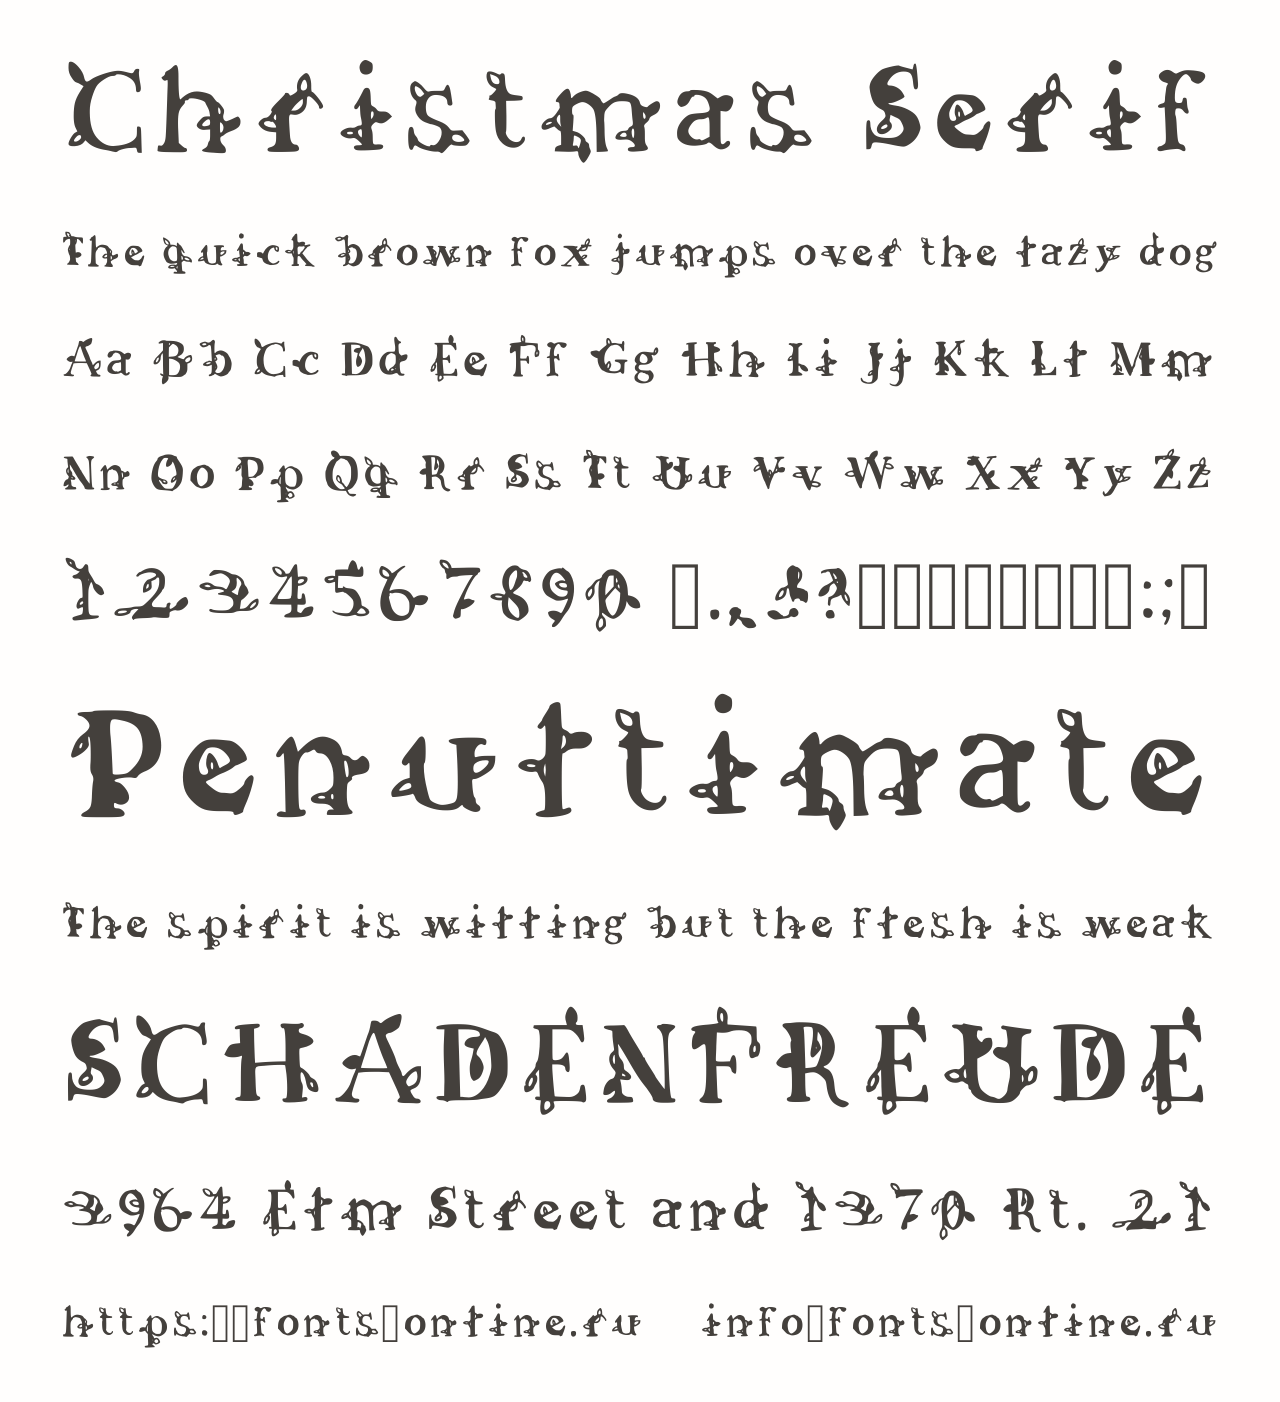 Christmas Serif
The quick brown fox jumps over the lazy dog
Aa Bb Cc Dd Ee Ff Gg Hh Ii Jj Kk Ll Mm
Nn Oo Pp Qq Rr Ss Tt Uu Vv Ww Xx Yy Zz
1234567890 □.,!?□□□□□□□□:;□
Penultimate
The spirit is willing but the flesh is weak
SCHADENFREUDE
3964 Elm Street and 1370 Rt. 21
https:□□fonts□online.ru info□fonts□online.ru